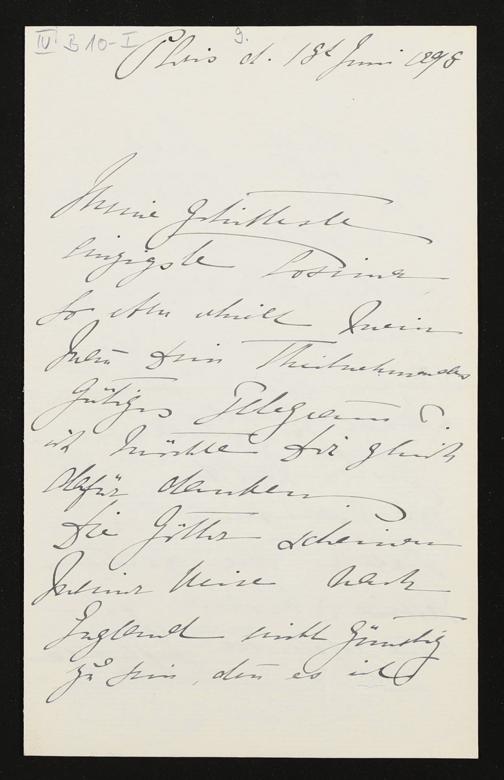 IV B 10-I 9.
d. 18t Juni 1898
Meine geliebteste
einzigste Cosima
So eben erhielt mein
Mann Dein Theilnehmendes
gütiges Telegramm &
ich möchte Dir gleich
dafür danken,
Die Götter scheinen
meiner Reise nach
England nicht günstig
zu sein, denn es ist